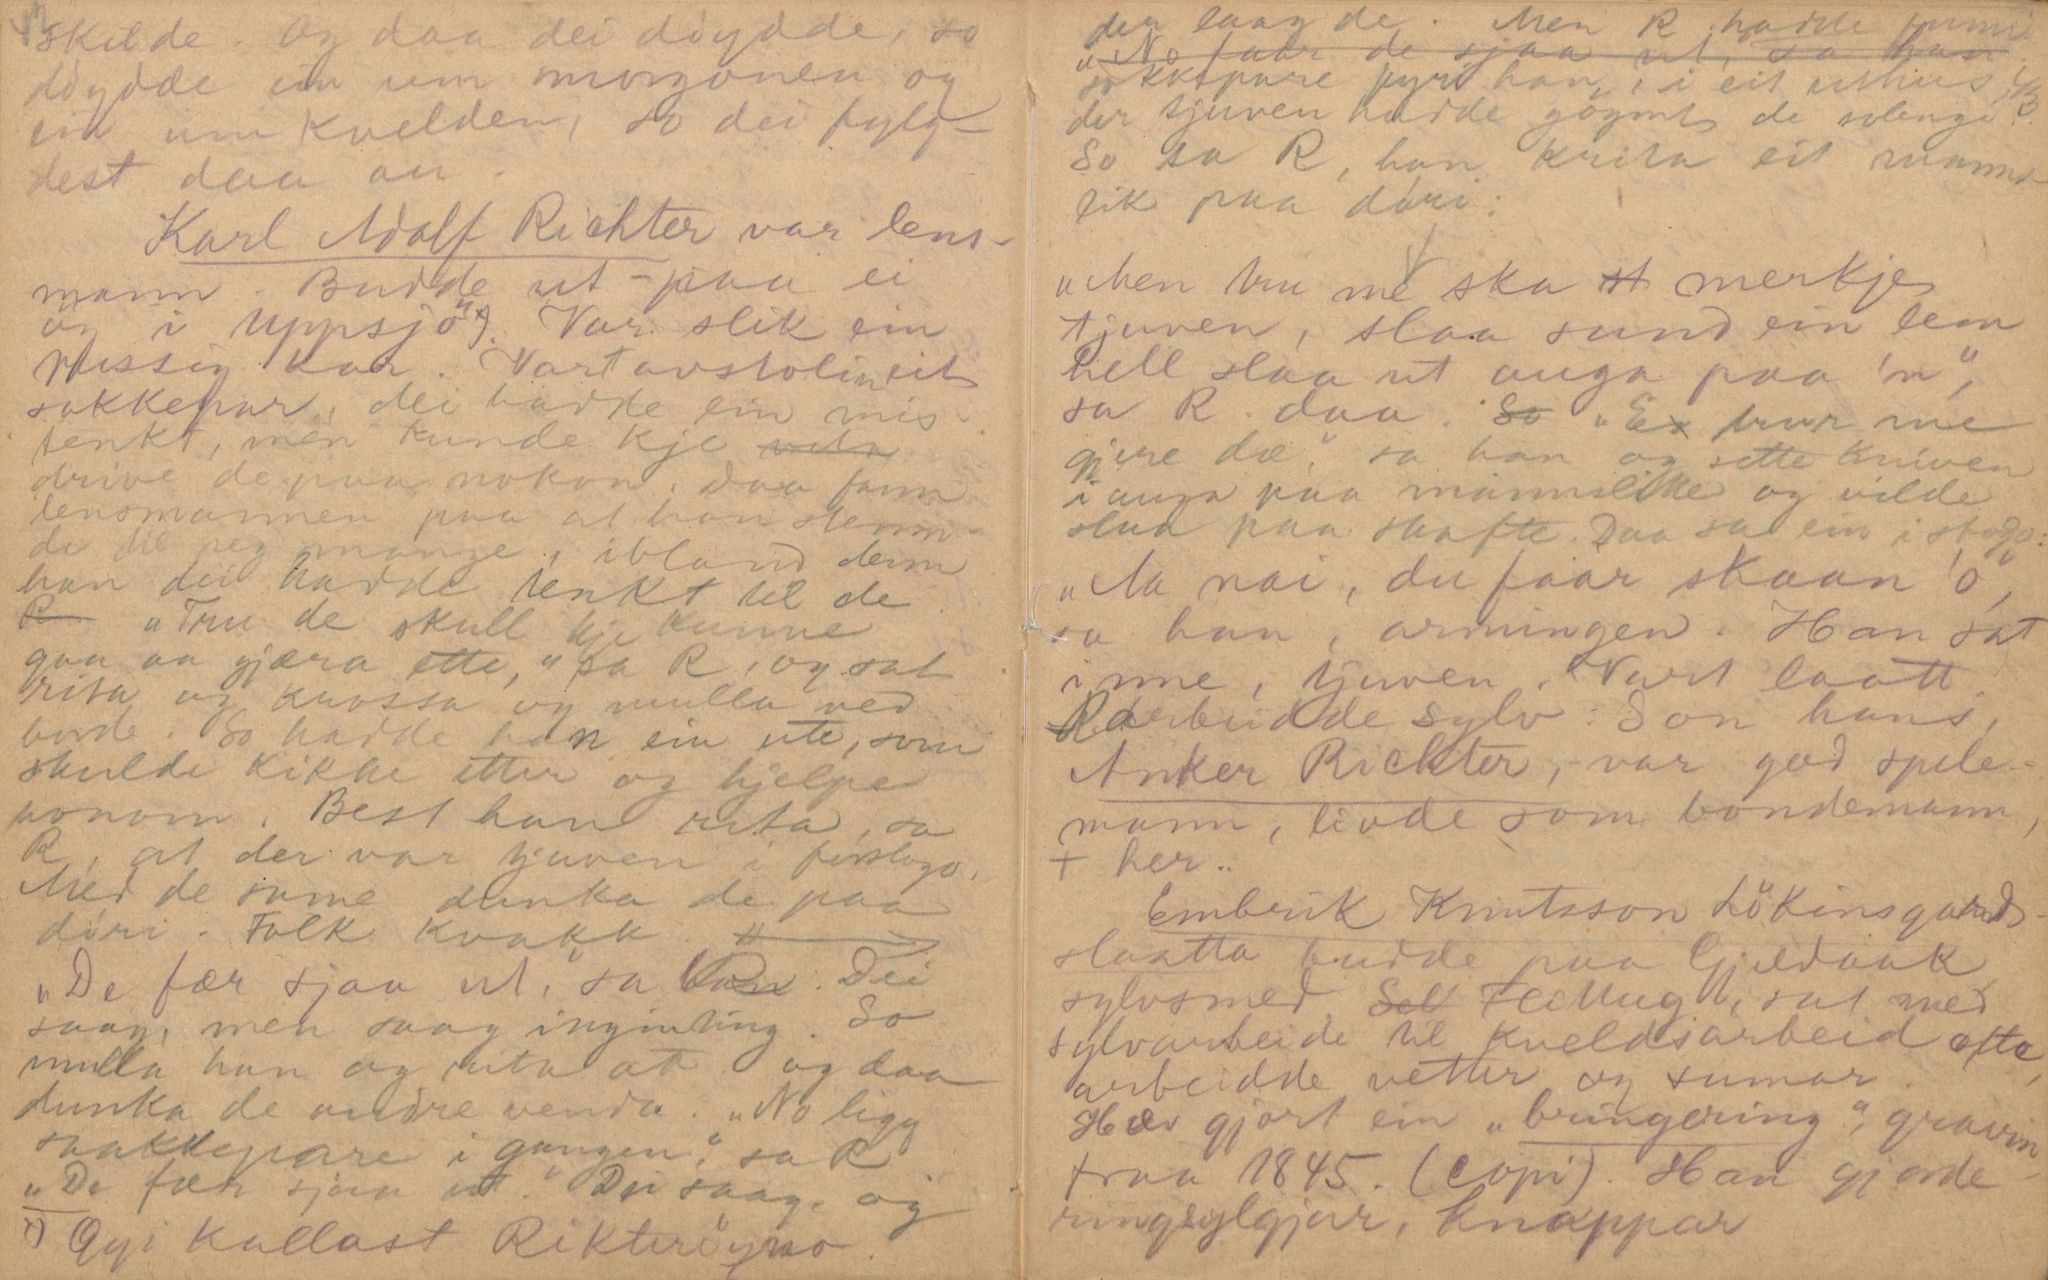 skilde. Og daa dei döydde, so
döydde ein um morgonen og
ein um kvelden, so dei fylg-
dest daa au.
Karl Adolf Richter var lens-
mann. Budde ut-paa ei
öy i Uppsjö x). Var slik ein
vissin kar. Vart avstolin eit
sokkepar, dei hadde ein mis-
tenkt, men kunde kje
drive de paa nokon. Daa fann
lensmannen paa at han stemn-
de til seg mange, ibland denn
han dei hadde tenkt til de.
R "Tru de skull kje kunne
gaa an gjæra ette," sa R, og sat
rita og krossa og mulla ved
borde. So hadde han ein ute, som
skulde kikke etter og hjelpe
honom. Best han rita, sa
R, at der var tjuven i forstogo.
Med de same dunka de paa
döri. Folk kvakk.
"De fær sjaa ut," sa han. Dei
saag, men saag inginting. So
mulla han og rita att og daa
dunka de andre venda. "No ligg
saakkepare i gangen," sa R.
"De fær sjaa ut." Dei saag, og
x) Øyi kallast Rikterøyno.
der laag de. Men R. hadde funne
"No faar de sjaa ut, sa han
sokkepare fyri han, i eit uthus,
der tjuven hadde göymt de solenge.
So sa R, han krita eit manns-
lik paa döri:
"Men tru me ska st merkje
tjuven, slaa sund ein lem
hell slaa ut auga paa 'n",
sa R. daa. So "Ex trur me
gjere dæ," sa han og sette kniven
i auga paa mannslike og vilde
slaa paa skafte. Daa sa ein i stogo:
"Aa nai, du faar skaan 'o",
sa han, armingen. Han sat
inne, tjuven. Vart laatt.
R arbeidde sylv. Son hans,
Anker Richter, var god spele-
mann, livde som bondemann,
+ her.
Embrik Knutsson Lökinsgards-
slaatta budde paa Gjeldaak
sylvsmed. Sel Flittug, sat med
sylvarbeide til kveldsarbeid ofte,
arbeidde vetter og sumar.
Hæv gjort ein "bringering", gravin
fraa 1845. (Copi). Han gjorde
ringsylgjor, knappar